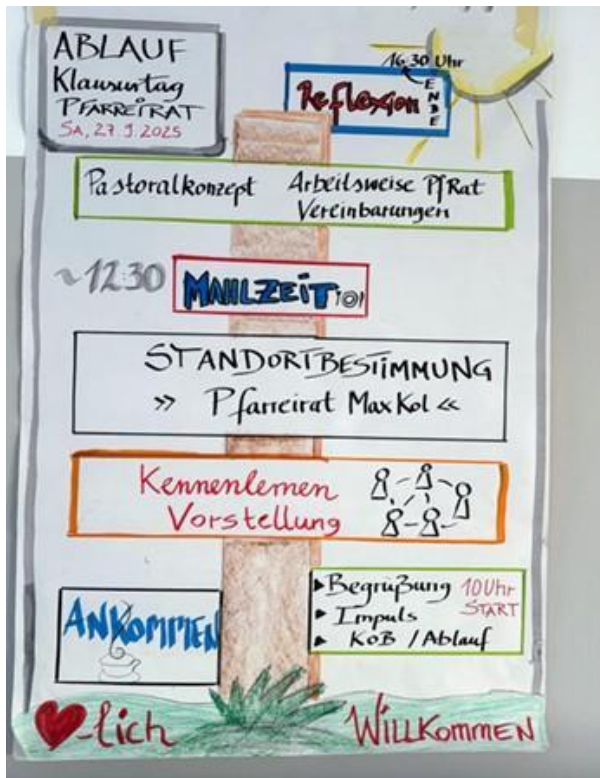 ABLAUF
Klausurtag
PFARREIRAT
SA, 27.9.2025
16.30 Uhr
ENDE
Reflexion
Pastoralkonzept Arbeitsweise PfRat
Vereinbarungen
~12:30 MAHLZEIT
STANDORTBESTIMMUNG
» Pfarreirat MaxKol «
Kennenlernen
Vorstellung
ANKOMMEN
▸ Begrüßung 10 Uhr
▸ Impuls START
▸ KoB / Ablauf
❤-lich WILLKOMMEN